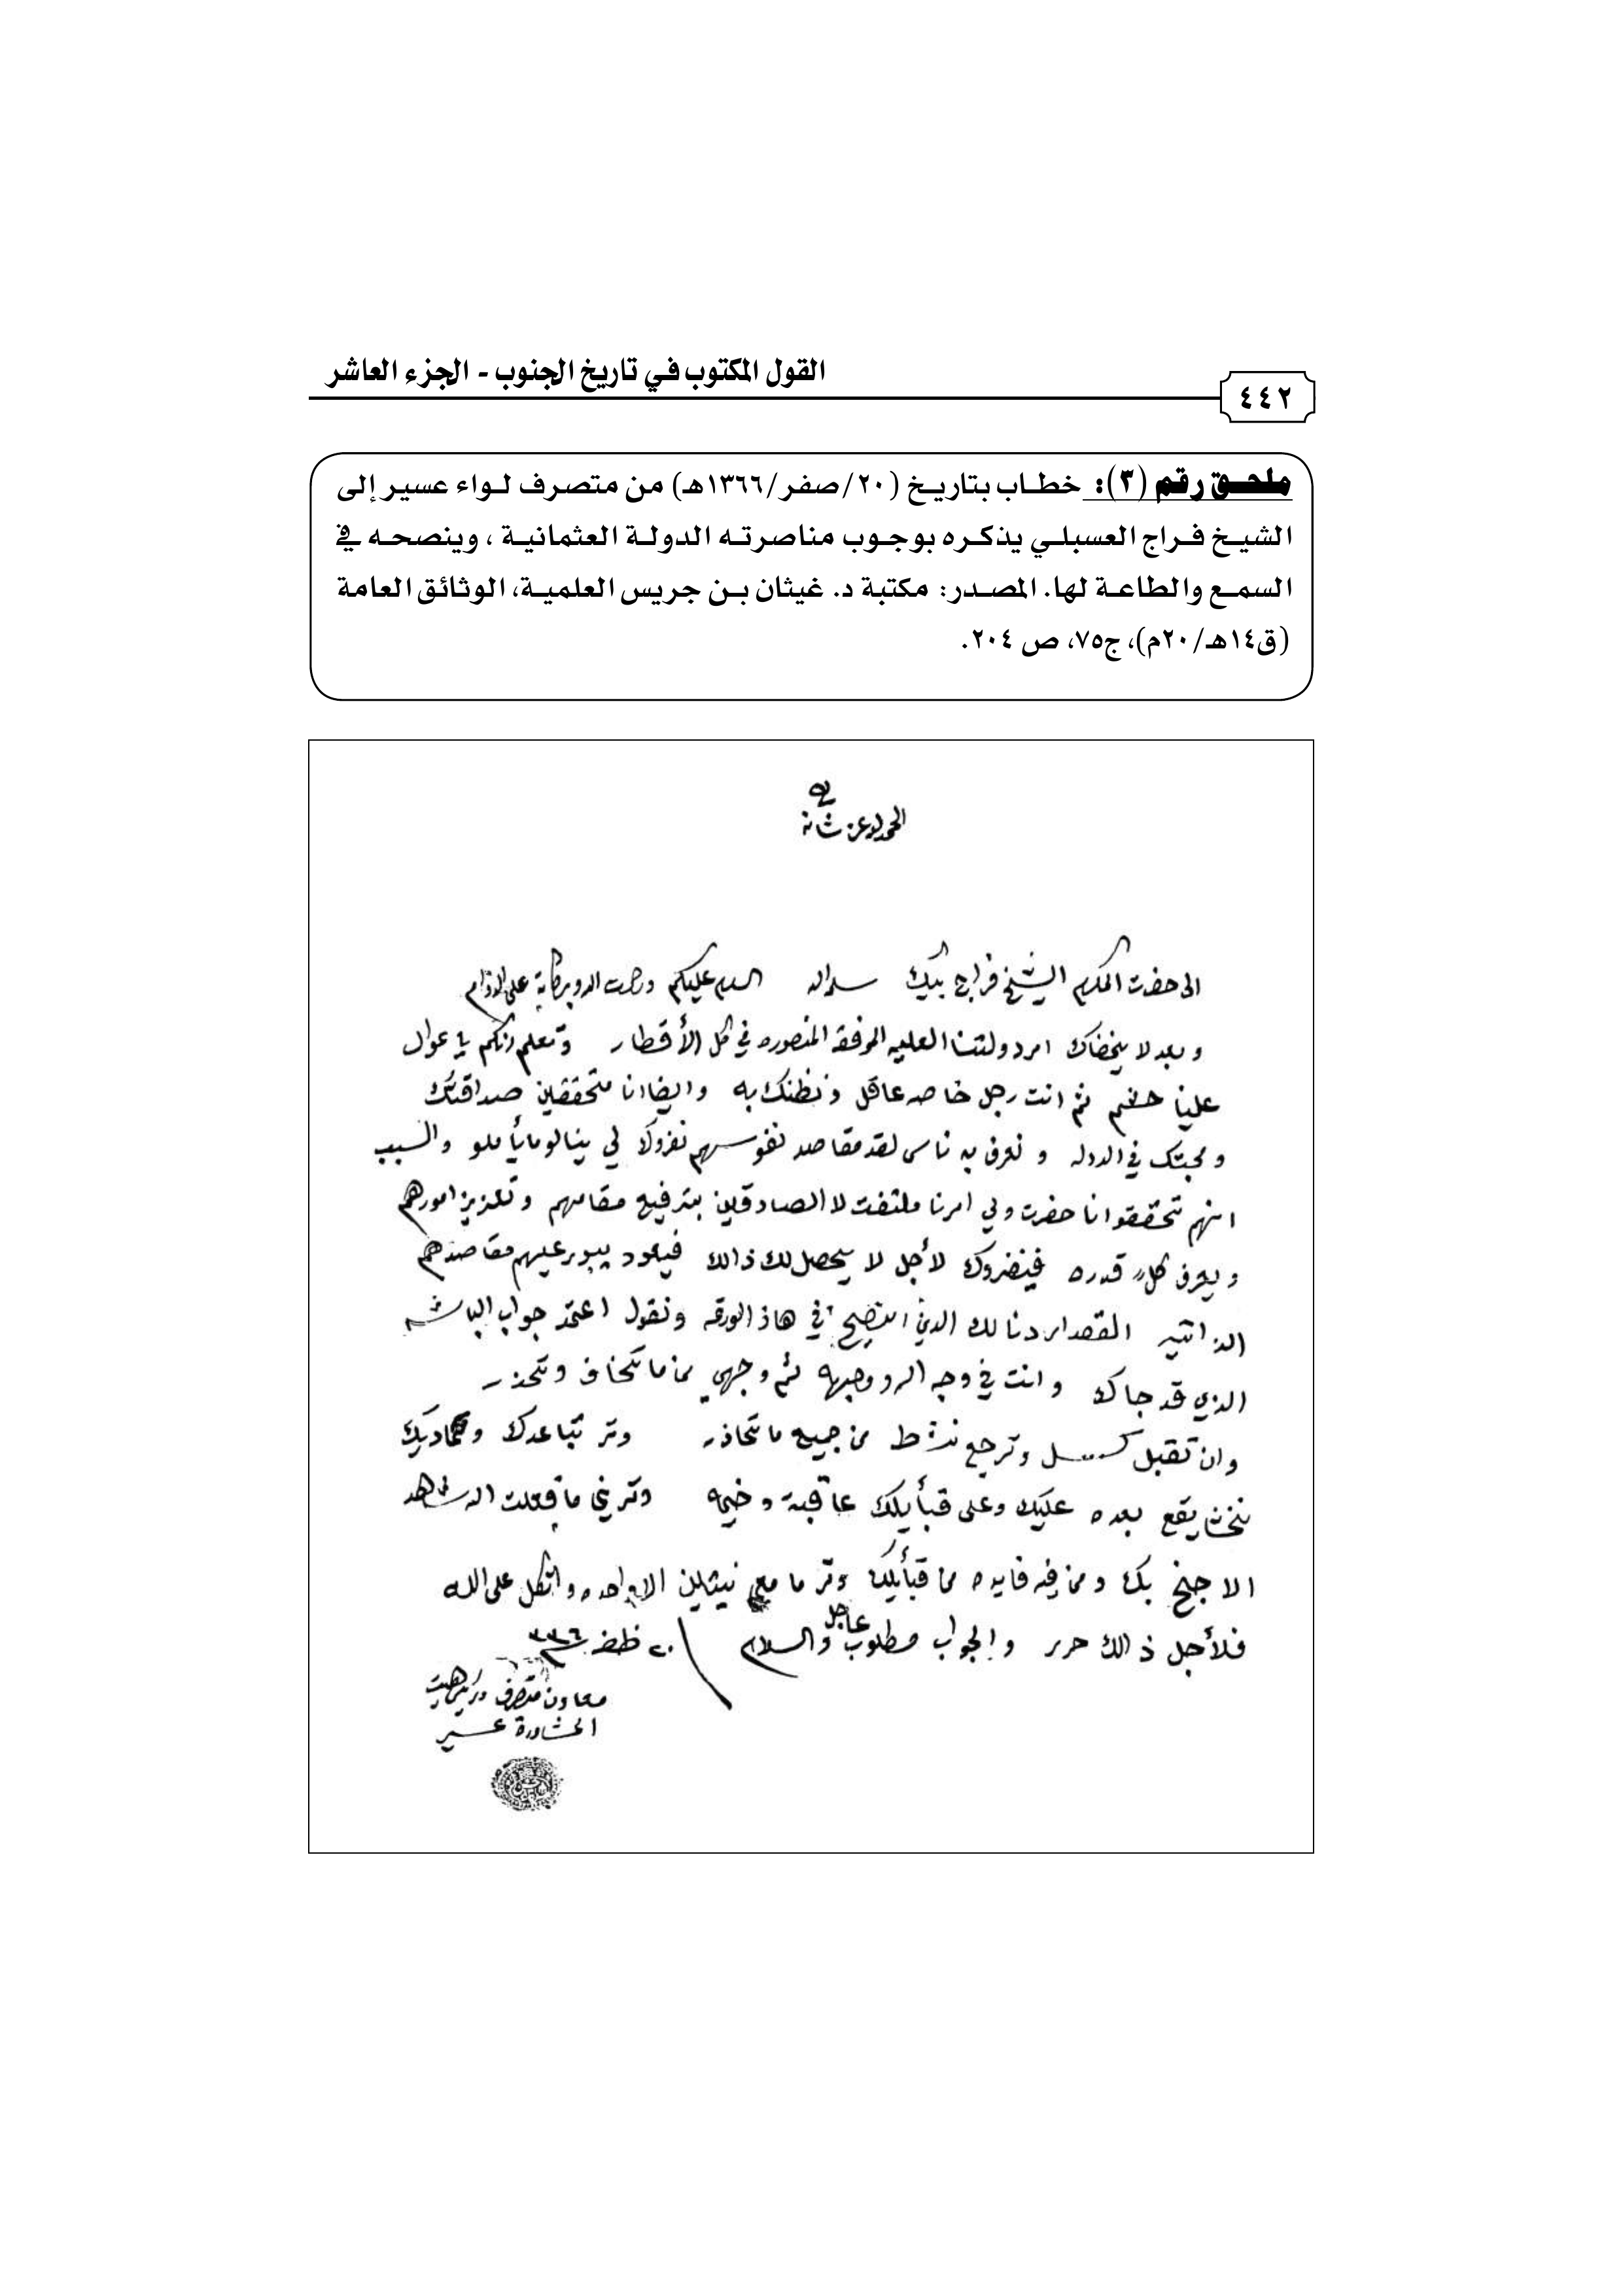 القول المكتوب في تاريخ الجنوب - الجزء العاشر
٤٤٢
ملحق رقم (٣): خطاب بتاريخ (٢٠/صفر/١٣٦٦هـ) من متصرف لواء عسير إلى
الشيخ فراج العسبلي يذكره بوجوب مناصرته الدولة العثمانية ، وينصحه في
السمع والطاعة لها. المصدر: مكتبة د. غيثان بن جريس العلمية، الوثائق العامة
(ق١٤هـ/٢٠م)، ج٧٥، ص ٢٠٤.
عز شانه
الى حضرت المكرم الشيخ فراج بيك سلمه الله السلام عليكم ورحمت الله وبركاته على الدوام
وبعد لا يخفاك امر دولتنا العليه الموفقه المنصوره في كل الأقطار وتعلم انكم يا عوال
علينا ثم انت رجل خاصه عاقل ونظنك به وايضا انا متحققين صداقتك
ومحبتك في الدوله و نعرف به ناس مقاصد نفوسهم والسبب
انهم تحققوا انا حضرت ولي امرنا ملتفت لا الصادقين بترفيع مقامهم وتعزيز امورهم
ويعرف كلا قدره لأجل لا يحصل لك ذالك فيعود عليهم مقاصدهم
القصد اردنا لك في هاذ الورقه ونقول اعتمد جواب الباشه
الذي قد جاك وانت في وجه الله ثم وجهي من ما تخاف وتحذر
وان تقبل وترجع من جميع ما تحاذر وتر تباعدك
يقع بعده عليك وعلى قبأيلك عاقبة وخيمه
الا بك ومن فيه فايده من قبأيلك وتر ما معي الا واحده واتكل على الله
فلأجل ذالك حرر والجواب مطلوب عاجل والسلام ٢٠
معاون متصرف ورئيس هيئت
المشاورة عسير